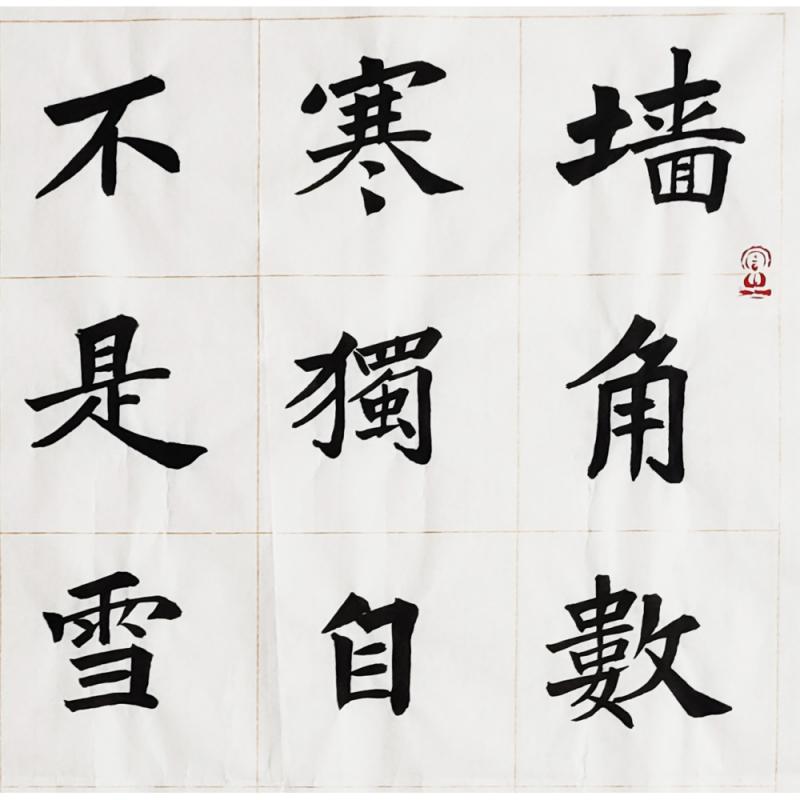 墙角數
寒獨自
不是雪